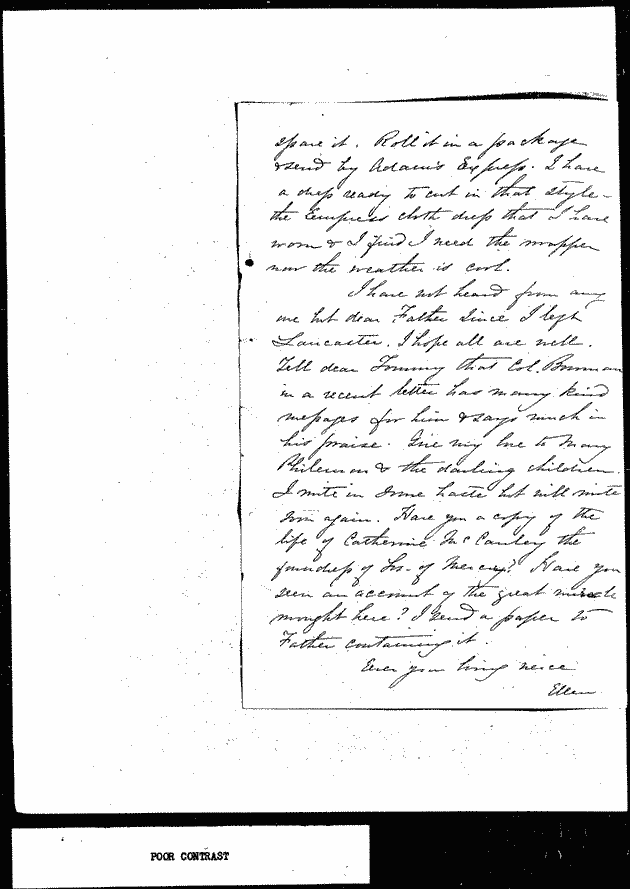 spare it. Roll it in a package
& send by Adam's Express. I have
a dress ready to cut in that style -
the Empress cloth dress that I have
worn & I find I need the wrapper
now the weather is cool.
I have not heard from any
one but dear Father since I left
Lancaster. I hope all are well.
Tell dear Tommy that Col. Bowman
in a recent letter has many kind
messages for him & says much in
his praise. Give my love to Mary
Philemon & the darling children.
I write in some haste but will write
soon again. Have you a copy of the
life of Catherine McCauley the
foundress of Srs. of Mercy? Have you
seen an account of the great miracle
wrought here? I send a paper to
Father containing it
Ever your loving neice
Ellen
POOR CONTRAST